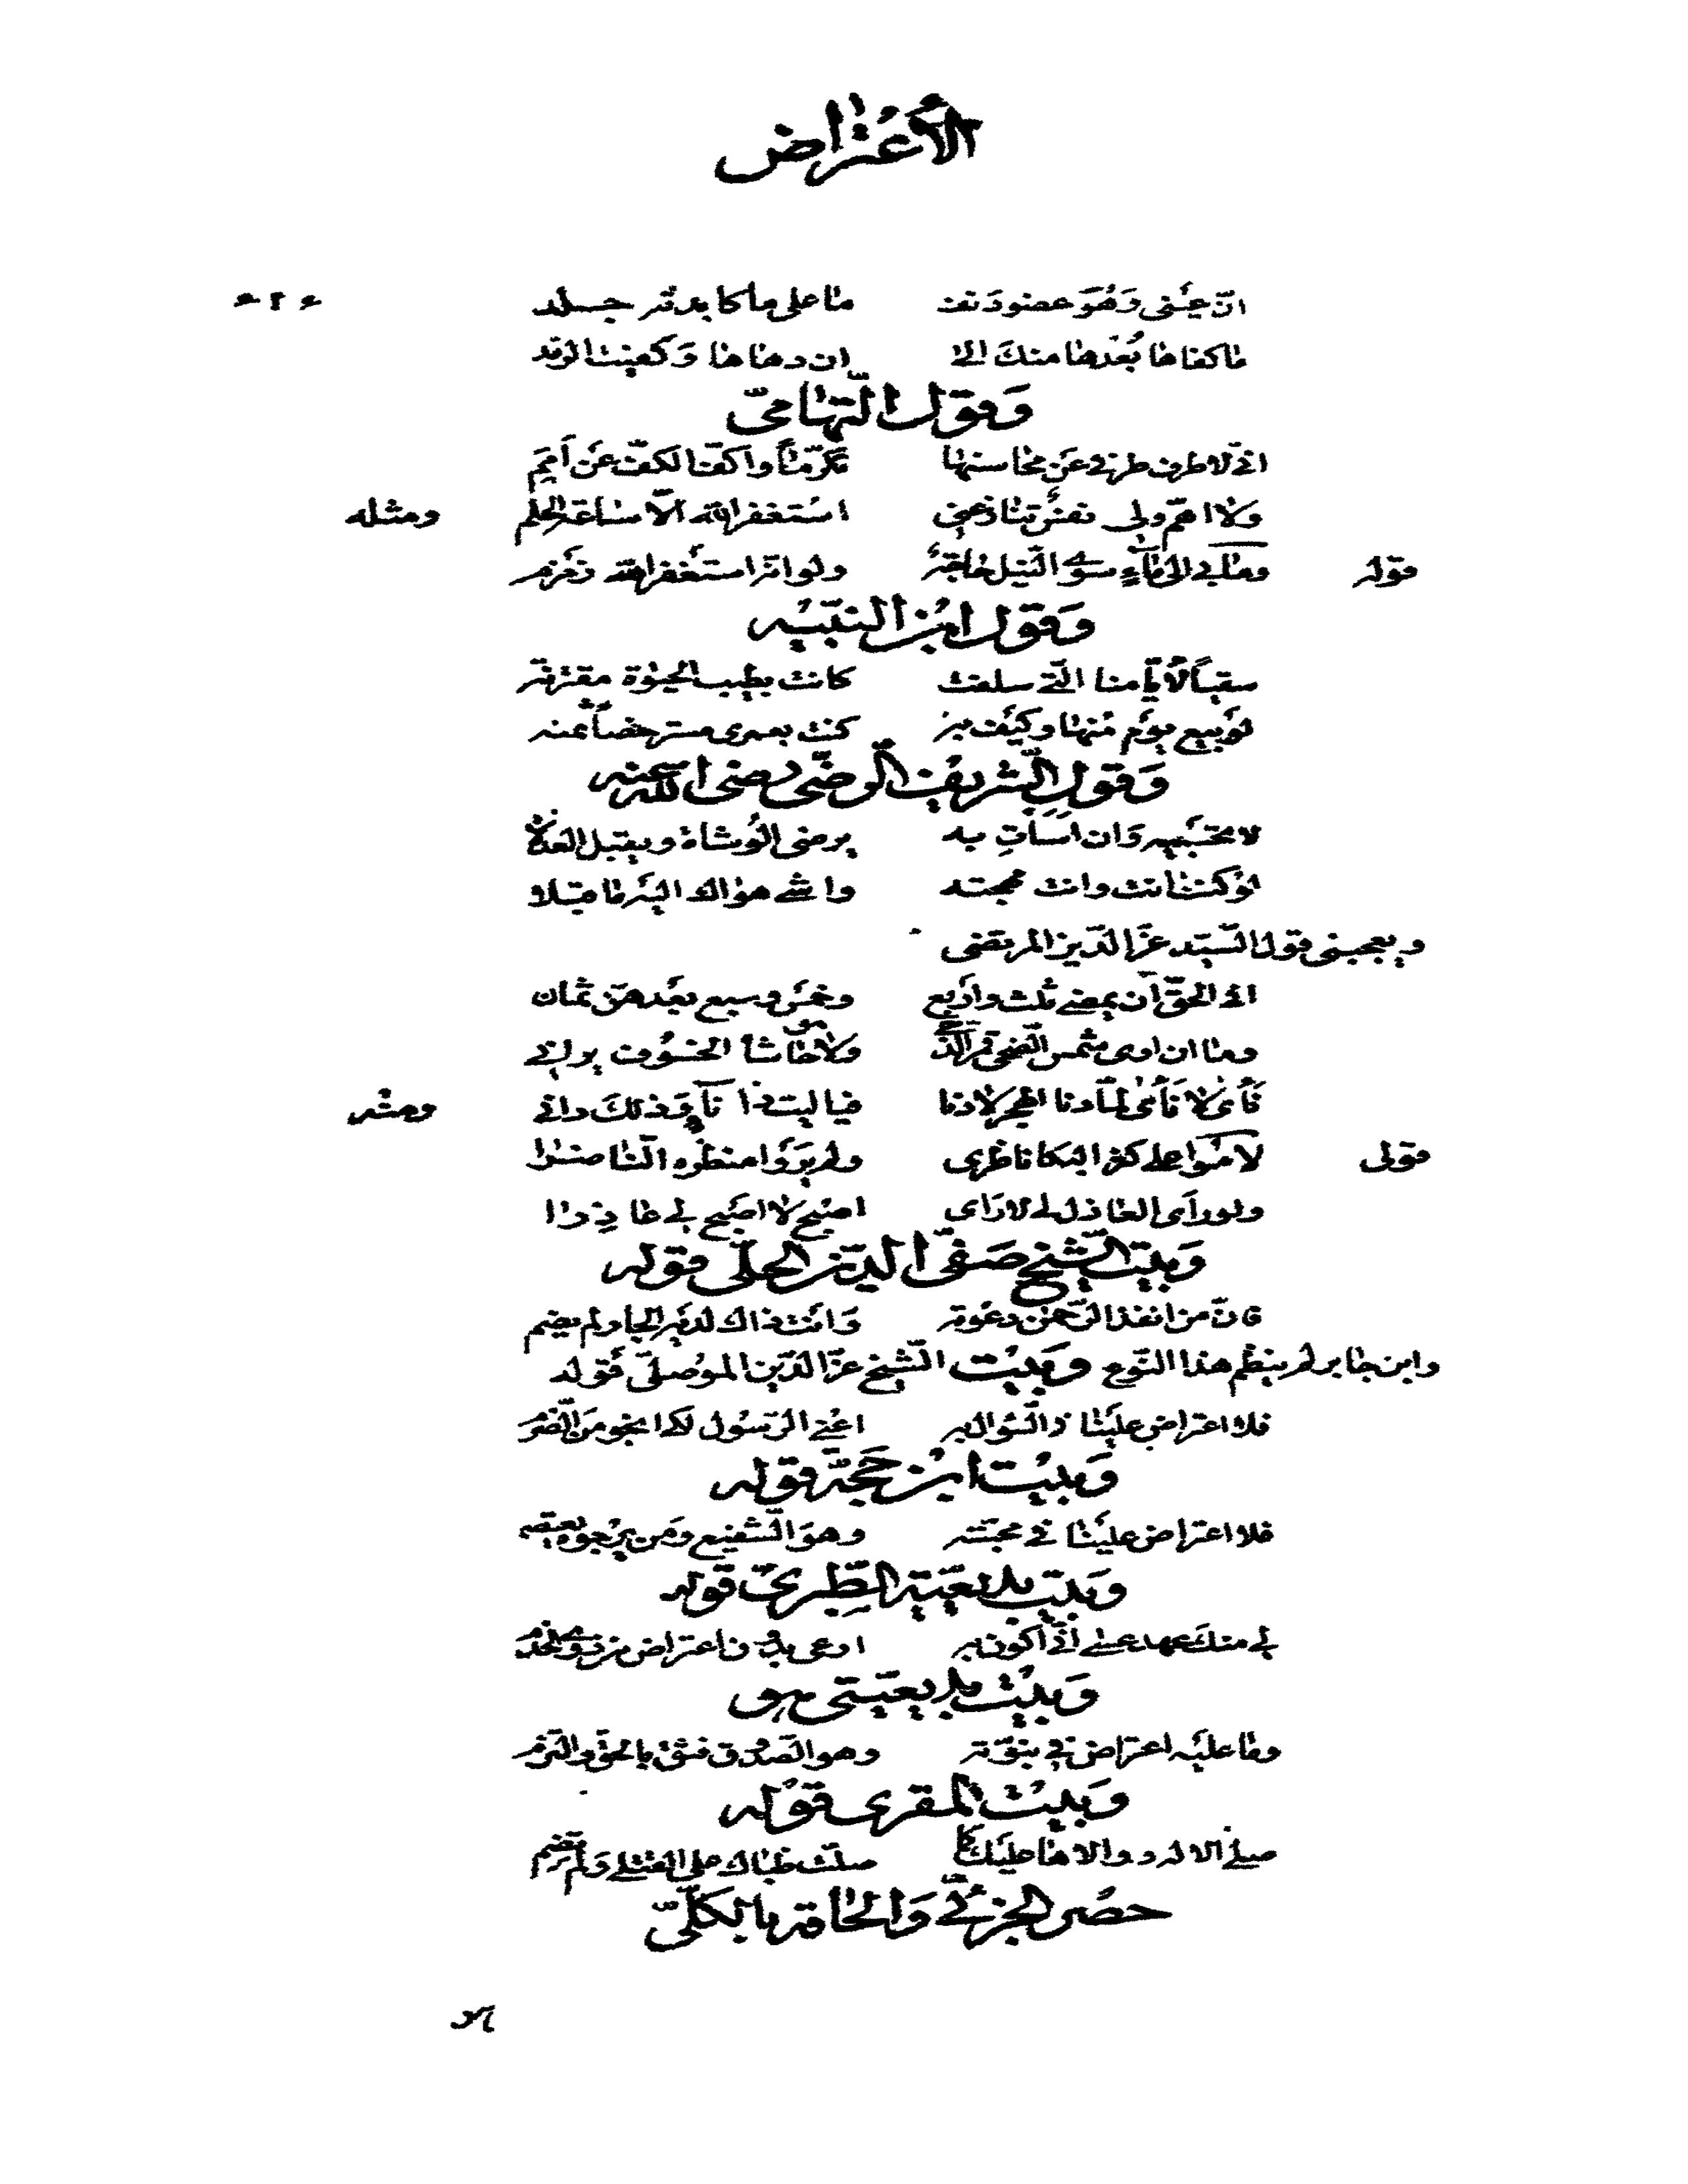 الأعتراض
ان عينى وَهُوَ عضو دنف ما على ما كابدته جسلد
ما كفاها بُعْدها منك الى ان دهاها وكعينت الرقد
وَقول التّهامىّ
انى لاطرف طرفى عَن محاسنها تكرّماً واكفّ الكفّ عَن اَمَمِ
وَلا اهمّ ولى نفسٌ تنازعنى استغفر الله الّا ساعة الحلم ومثله
قوله ومالى الى ماءٍ سوى النيل حاجةٌ ولو انه استغفر الله زمزم
وَقول ابن النبيه
سقياً لأيّامنا الّتى سلفت كانت بطيب الحيوة مقترنه
لو بيع يوم منها وكيف به كنت بعمرى مسترخصاً ثمنه
وَقول الشريف الرضّى رضى الله عنه
لا تحسبيه وَان اسأتِ به يرضى الوُشاة ويقبل العذلا
لو كنت انت وانت مهجته واشى هواك اليه ما قبلا
ويعجبنى قول السّيّد عزّ الدّين المرتضى
الا الحقّ ان يمضى ثلث واربع وخمس وسبع بعدهن ثمان
وما ان ارى شمس الضحى قمر الدّجى ولا حاشا الخسوف يرانى
نأى لا نأى لمّا دنا الهجر لا دنا فيا ليت ذا ناٍ وَذلك دانى ومثله
قولى لاموا على كثر البكا ناظرى ولم يروا منظره النّاضرا
ولو رأى العاذل لى لا رَاى اصبح لا اصبح لى عاذرا
وَبيت الشّيخ صَفىّ الدّين الحلّى قوله
فانّ من انفذ الرّحمن دعوته وَانت ذاك لديه الجار لم يضم
وابن جابر لم ينظم هذا النّوع وَبيت الشّيخ عزّ الدّين الموصلىّ قوله
فلا اعتراض علينا فى السّؤال به اعنى الرّسول لكى ننجو من الضّرم
وَبيت ابن حجّة قوله
فلا اعتراض علينا فى محبّته وهو الشّفيع ومن يرجوه يعتصم
وَبيت بديعيّة الطّبرىّ قوله
لى منك عهد عسى انّى اكون به ادعى بدون اعتراض من ذوى الخدم
وَبيت بديعيّتى هو
وما عليه اعتراض فى نبوّته وهو الصّدوق فثق بالحقّ والتزم
وَبيت المقرى قوله
صلّى الاله والاها عليك كما صلّت ظباك على القتلى وَلم تضم
حصر الجزئى وَالحاقه بالكلّىّ